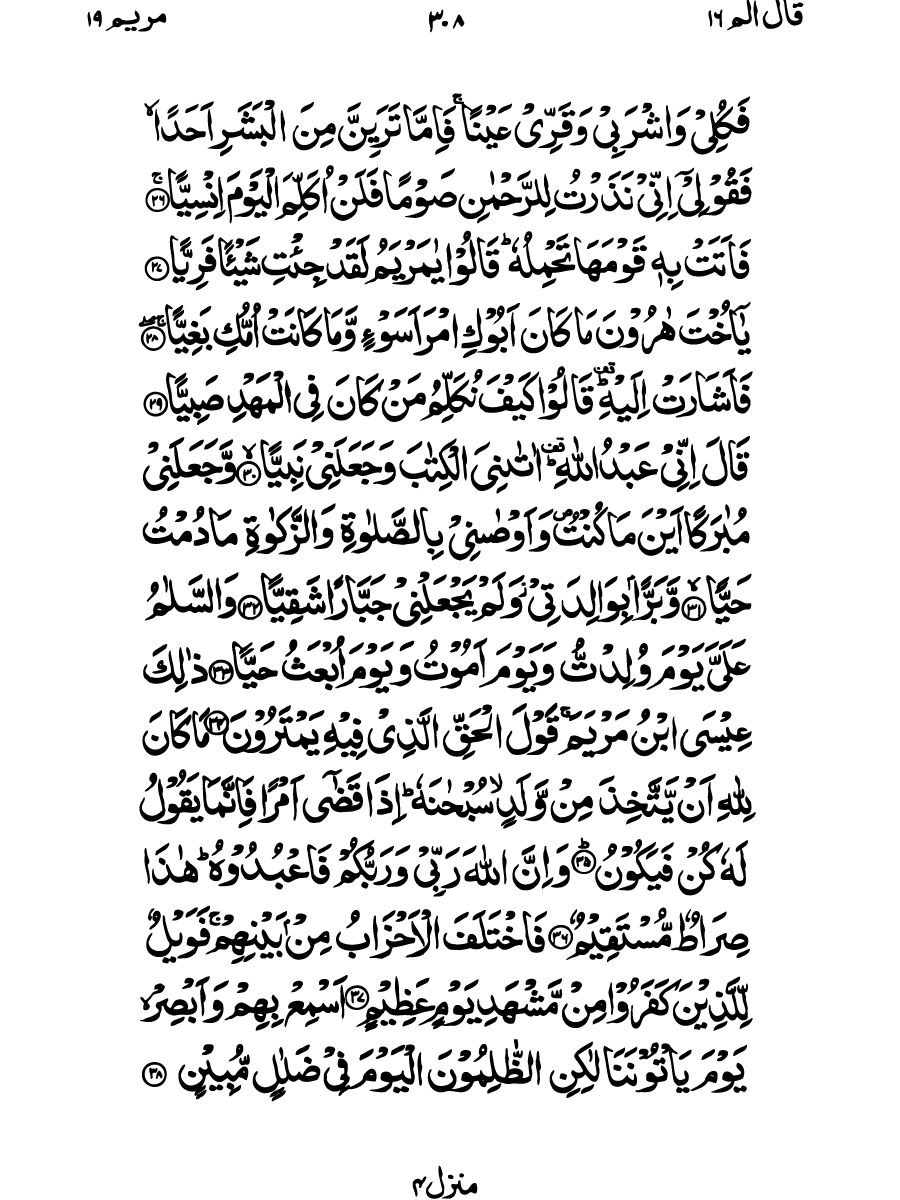 قال الم ١٦
٣٠٨
مريم ١٩
فَكُلِىْ وَاشْرَبِىْ وَقَرِّىْ عَيْنًا ۚ فَاِمَّا تَرَيِنَّ مِنَ الْبَشَرِ اَحَدًا ۙ
فَقُوْلِىْٓ اِنِّىْ نَذَرْتُ لِلرَّحْمٰنِ صَوْمًا فَلَنْ اُكَلِّمَ الْيَوْمَ اِنْسِيًّا ۚ ﴿٢٦﴾
فَاَتَتْ بِهٖ قَوْمَهَا تَحْمِلُهٗ ؕ قَالُوْا يٰمَرْيَمُ لَقَدْ جِئْتِ شَيْئًا فَرِيًّا ﴿٢٧﴾
يٰٓاُخْتَ هٰرُوْنَ مَا كَانَ اَبُوْكِ امْرَاَ سَوْءٍ وَّمَا كَانَتْ اُمُّكِ بَغِيًّا ۖۚ ﴿٢٨﴾
فَاَشَارَتْ اِلَيْهِ ؕ قف قَالُوْا كَيْفَ نُكَلِّمُ مَنْ كَانَ فِى الْمَهْدِ صَبِيًّا ﴿٢٩﴾
قَالَ اِنِّىْ عَبْدُ اللّٰهِ ؕ قف اٰتٰىنِىَ الْكِتٰبَ وَجَعَلَنِىْ نَبِيًّا ۙ ﴿٣٠﴾ وَّجَعَلَنِىْ
مُبٰرَكًا اَيْنَ مَا كُنْتُ ۪ وَاَوْصٰىنِىْ بِالصَّلٰوةِ وَالزَّكٰوةِ مَا دُمْتُ
حَيًّا ۙ ﴿٣١﴾ وَّبَرًّاۢ بِوَالِدَتِىْ ؗ وَلَمْ يَجْعَلْنِىْ جَبَّارًا شَقِيًّا ﴿٣٢﴾ وَالسَّلٰمُ
عَلَىَّ يَوْمَ وُلِدْتُّ وَيَوْمَ اَمُوْتُ وَيَوْمَ اُبْعَثُ حَيًّا ﴿٣٣﴾ ذٰلِكَ
عِيْسَى ابْنُ مَرْيَمَ ۚ قَوْلَ الْحَقِّ الَّذِىْ فِيْهِ يَمْتَرُوْنَ ﴿٣٤﴾ مَا كَانَ
لِلّٰهِ اَنْ يَّتَّخِذَ مِنْ وَّلَدٍ ۙ سُبْحٰنَهٗ ؕ اِذَا قَضٰٓى اَمْرًا فَاِنَّمَا يَقُوْلُ
لَهٗ كُنْ فَيَكُوْنُ ؕ ﴿٣٥﴾ وَاِنَّ اللّٰهَ رَبِّىْ وَرَبُّكُمْ فَاعْبُدُوْهُ ؕ هٰذَا
صِرَاطٌ مُّسْتَقِيْمٌ ﴿٣٦﴾ فَاخْتَلَفَ الْاَحْزَابُ مِنْۢ بَيْنِهِمْ ۚ فَوَيْلٌ
لِّلَّذِيْنَ كَفَرُوْا مِنْ مَّشْهَدِ يَوْمٍ عَظِيْمٍ ﴿٣٧﴾ اَسْمِعْ بِهِمْ وَاَبْصِرْ ۙ
يَوْمَ يَاْتُوْنَنَا لٰكِنِ الظّٰلِمُوْنَ الْيَوْمَ فِىْ ضَلٰلٍ مُّبِيْنٍ ﴿٣٨﴾
منزل ٤